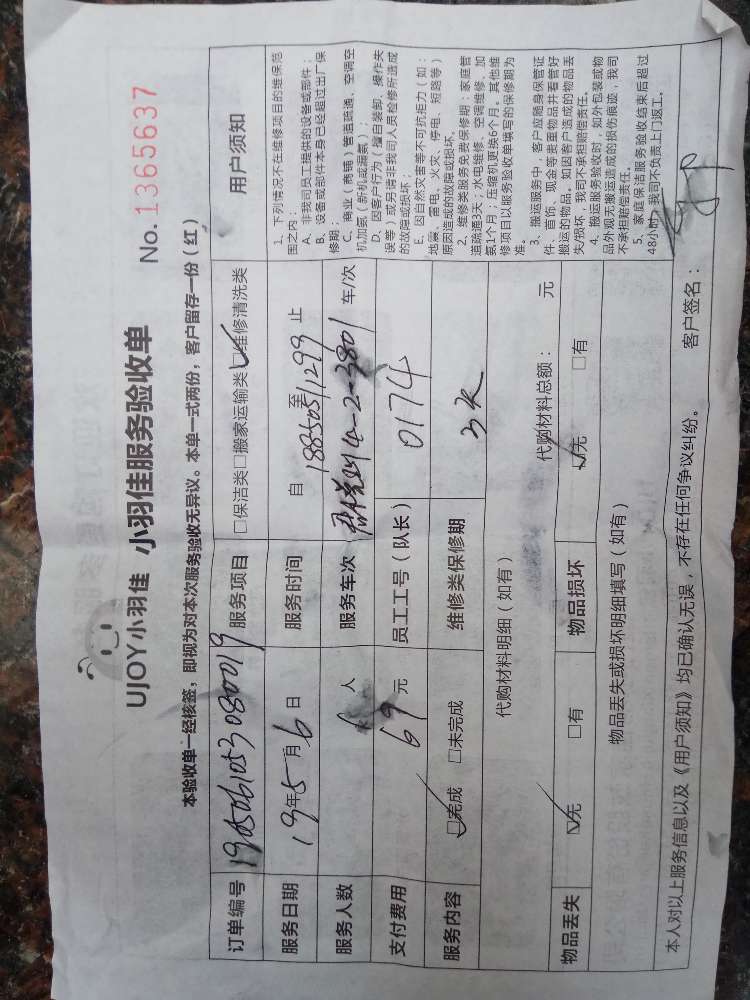 UJOY小羽佳 小羽佳服务验收单
No. 1365637
本验收单一经核签，即视为对本次服务验收无异议。本单一式两份，客户留存一份（红）
订单编号 1905061053080019 服务项目 □保洁类□搬家运输类□维修清洗类
服务日期 19年5月6日 服务时间 自 至 止
18850511299
服务人数 人 服务车次 4-2-3801 车/次
支付费用 69元 员工工号（队长） 0174
服务内容 □完成 □未完成 维修类保修期 3天
代购材料明细（如有） 代购材料总额： 元
物品丢失 □无 □有 物品损坏 □无 □有
物品丢失或损坏明细填写（如有）
用户须知
1、下列情况不在维修项目的维保范
围之内：
A、非我司员工提供的设备或部件；
B、设备或部件本身已经超过出厂保
修期；
C、商业（商铺）管道疏通、空调空
机加氨（新机或漏氨）；
D、因客户行为（擅自装卸、操作失
误等）或另请非我司人员检修所造成
的故障或损坏
E、因自然灾害等不可抗拒力（如：
地震、雷电、火灾、停电、短路等）
原因造成的故障或损坏。
2、维修类服务免费保修期：家庭管
道疏通3天；水电维修、空调维修、加
氨1个月；压缩机更换6个月。其他维
修项目以服务验收单填写的保修期为
准。
3、搬运服务中，客户应随身保管证
件、首饰、现金等贵重物品并看管好
搬运的物品。如因客户造成的物品丢
失/损坏，我司不承担赔偿责任。
4、搬运服务验收时，如外包装或物
品外观无搬运造成的损伤痕迹，我司
不承担赔偿责任。
5、家庭保洁服务验收结束后超过
48小时，我司不负责上门返工。
本人对以上服务信息以及《用户须知》均已确认无误，不存在任何争议纠纷。 客户签名：